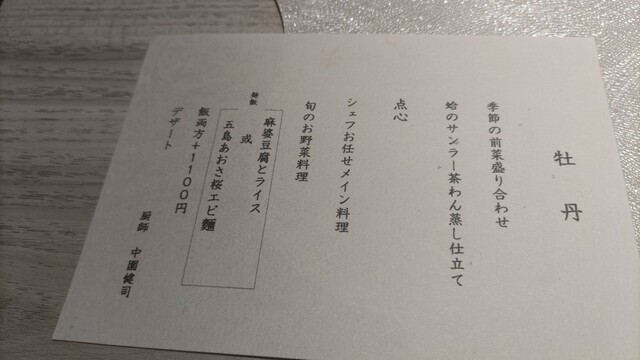 牡丹
季節の前菜盛り合わせ
蛤のサンラー茶わん蒸し仕立て
点心
シェフお任せメイン料理
旬のお野菜料理
麺飯
麻婆豆腐とライス
或
五島あおさ桜エビ麺
飯両方＋１１００円
デザート
厨師 中園健司